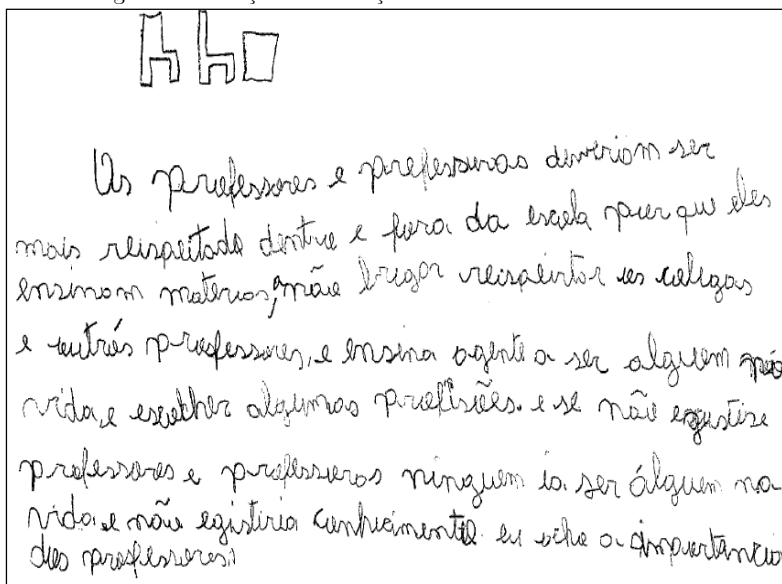 Os professores e professoras deveriam ser
mais reispeitado dentro e fora da escola por que eles
ensinam materias, não brigar reispeintar os colegas
e outrós professores, e ensina agente a ser alguem na
vida, e escolher algumas profisões. e se não egistise
professores e professoras ninguem ia ser álguem na
vida e não egistiria conhicimento eu acho a importância
dos professores.